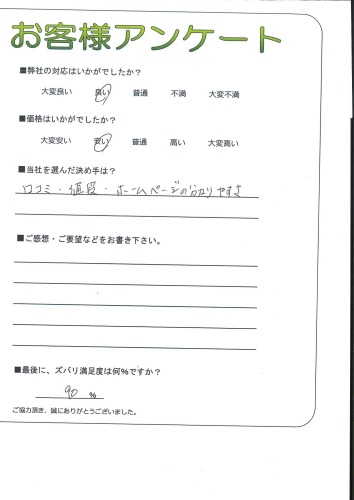 お客様アンケート
■弊社の対応はいかがでしたか？
大変良い 良い 普通 不満 大変不満
■価格はいかがでしたか？
大変安い 安い 普通 高い 大変高い
■当社を選んだ決め手は？
口コミ・値段・ホームページの分かりやすさ
■ご感想・ご要望などをお書き下さい。
■最後に、ズバリ満足度は何％ですか？
90 ％
ご協力頂き、誠にありがとうございました。